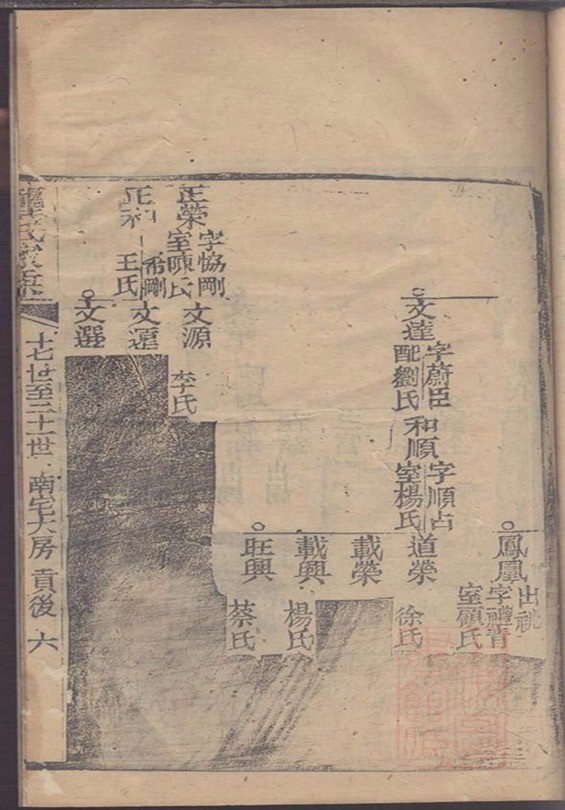 鳳凰
出祧
字禮青
室顧氏
文達
字蔚臣
配劉氏
和順
字順占
室楊氏
道榮
徐氏
載榮
載興
楊氏
旺興
蔡氏
正榮
字恊剛
室陳氏
文源
李氏
正和
希剛
王氏
文選
氏家乘
十七世至二十一世 南宅大房 貢後 六